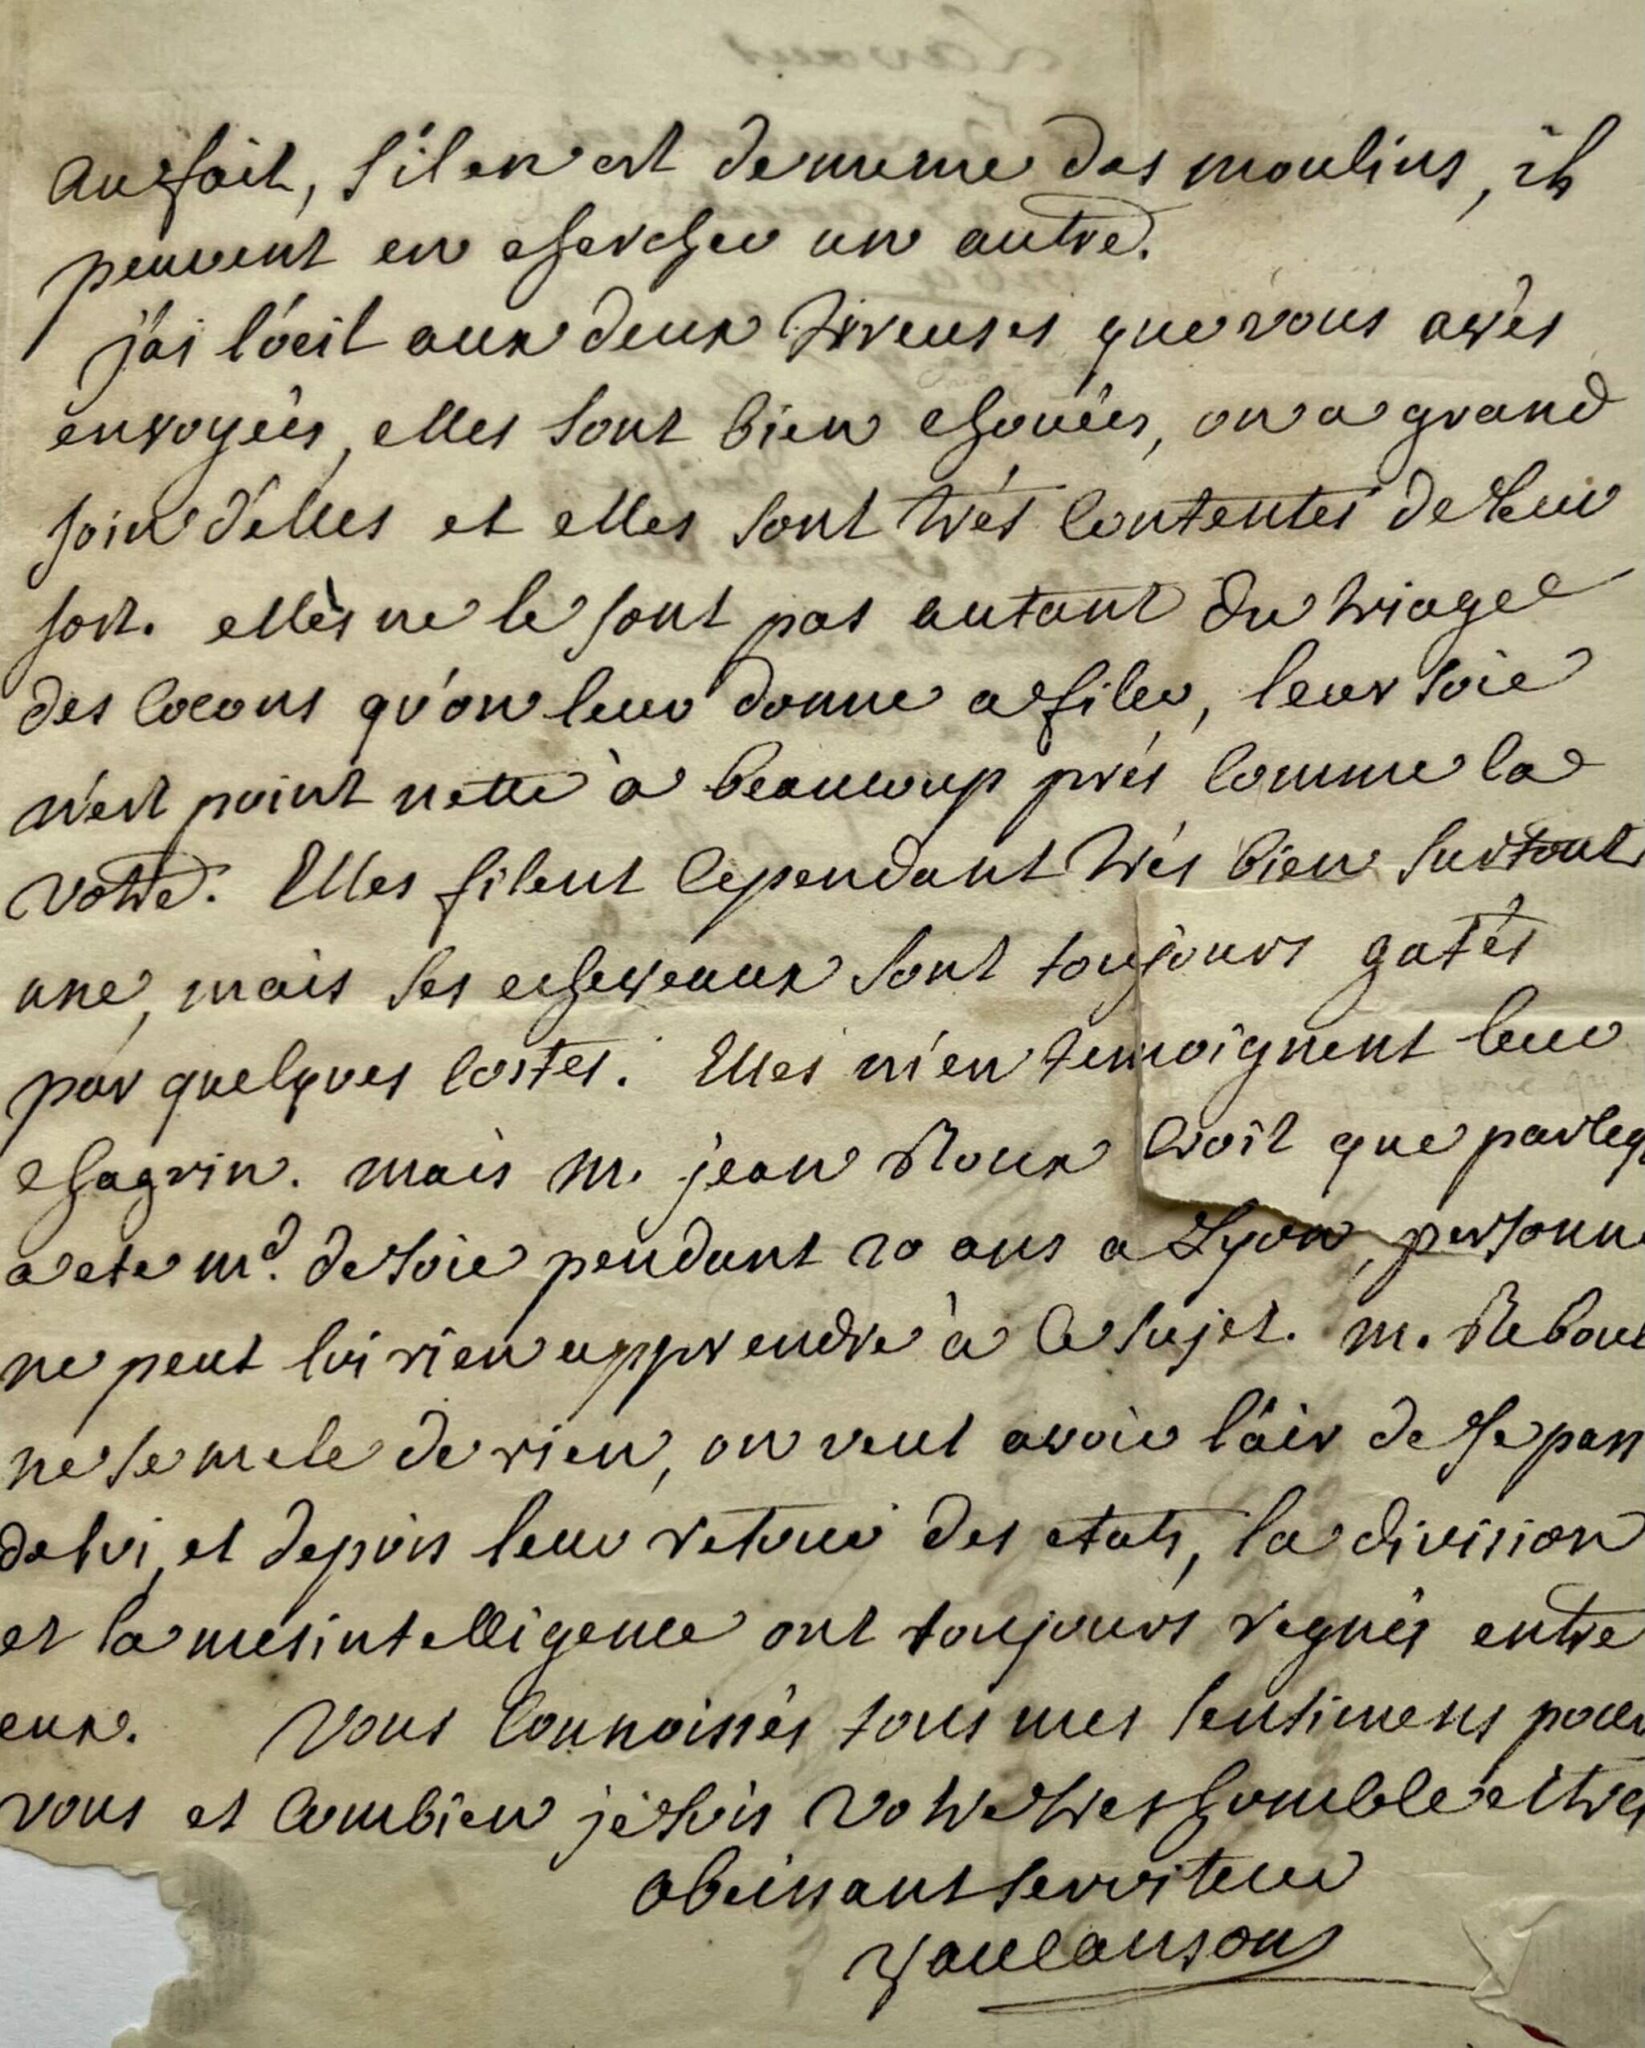 au fait, s'il en est de meme des moulins, ils
peuvent en chercher un autre.
j'ai l'oeil aux deux tireuses que vous avés
envoyées, elles sont bien choiiées, on a grand
soin d'elles et elles sont trés contentes de leur
sort. elles ne le sont pas autant du triage
des cocons qu'on leur donne a filer, leur soie
n'est point nette à beaucoup prés comme la
votre. Elles filent cependant trés bien surtout
une, mais ses echeveaux sont toujours gatés
par quelques costes. Elles m'en temoignent leur
chagrin. mais m. jean Roux croit que parcequ
a eté md. de soie pendant 20 ans a Lyon, personne
ne peut lui rien apprendre à ce sujet. m. Reboul
ne se mele de rien, on veut avoir l'air de se pass
de lui, et depuis leur retour des etats, la division
et la mésintelligence ont toujours regnés entre
eux. Vous connoissés tous mes sentimens pour
vous et combien je suis votre tres humble et tres
obeissant serviteur